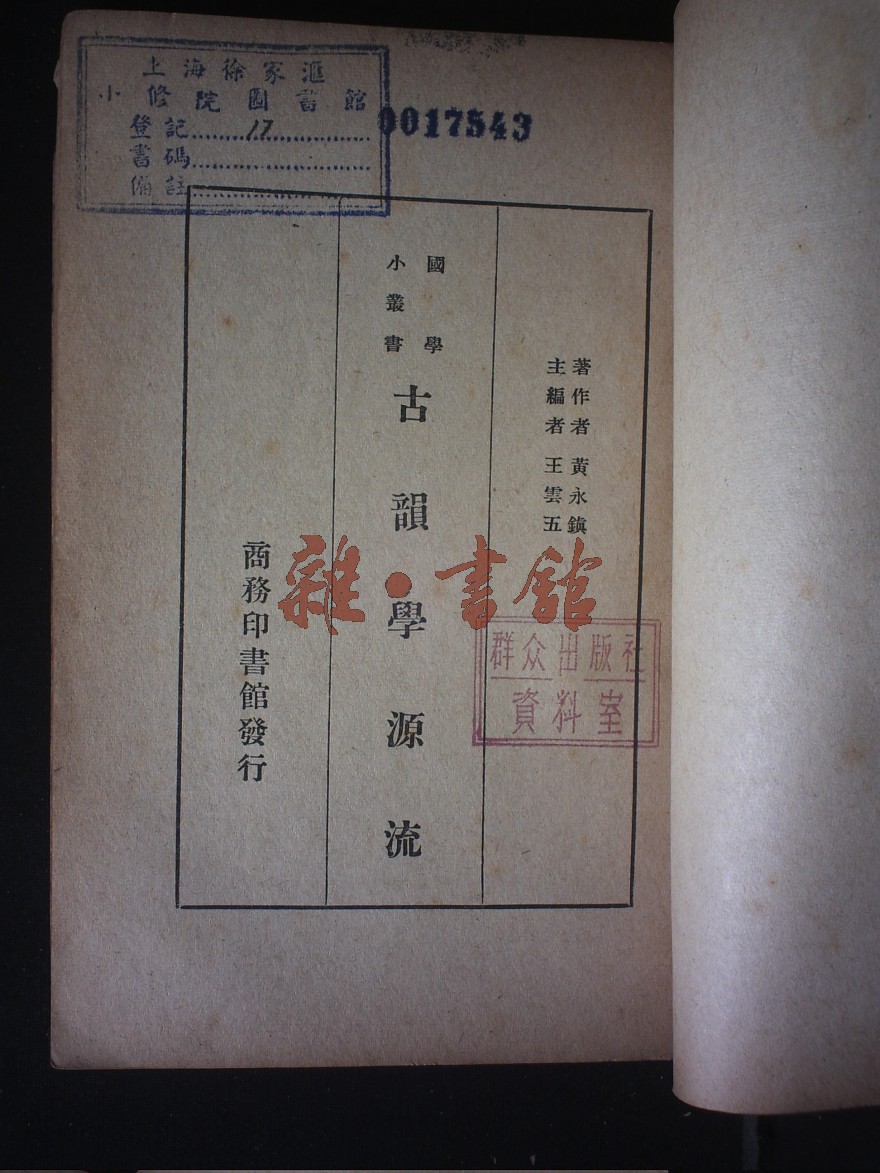 上海徐家滙
小修院圖書館
登記 17
書碼
備註
0017543
著作者 黃永鎮
主編者 王雲五
國學
小叢書
古韻學源流
商務印書館發行
雜·書館
群众出版社
資料室